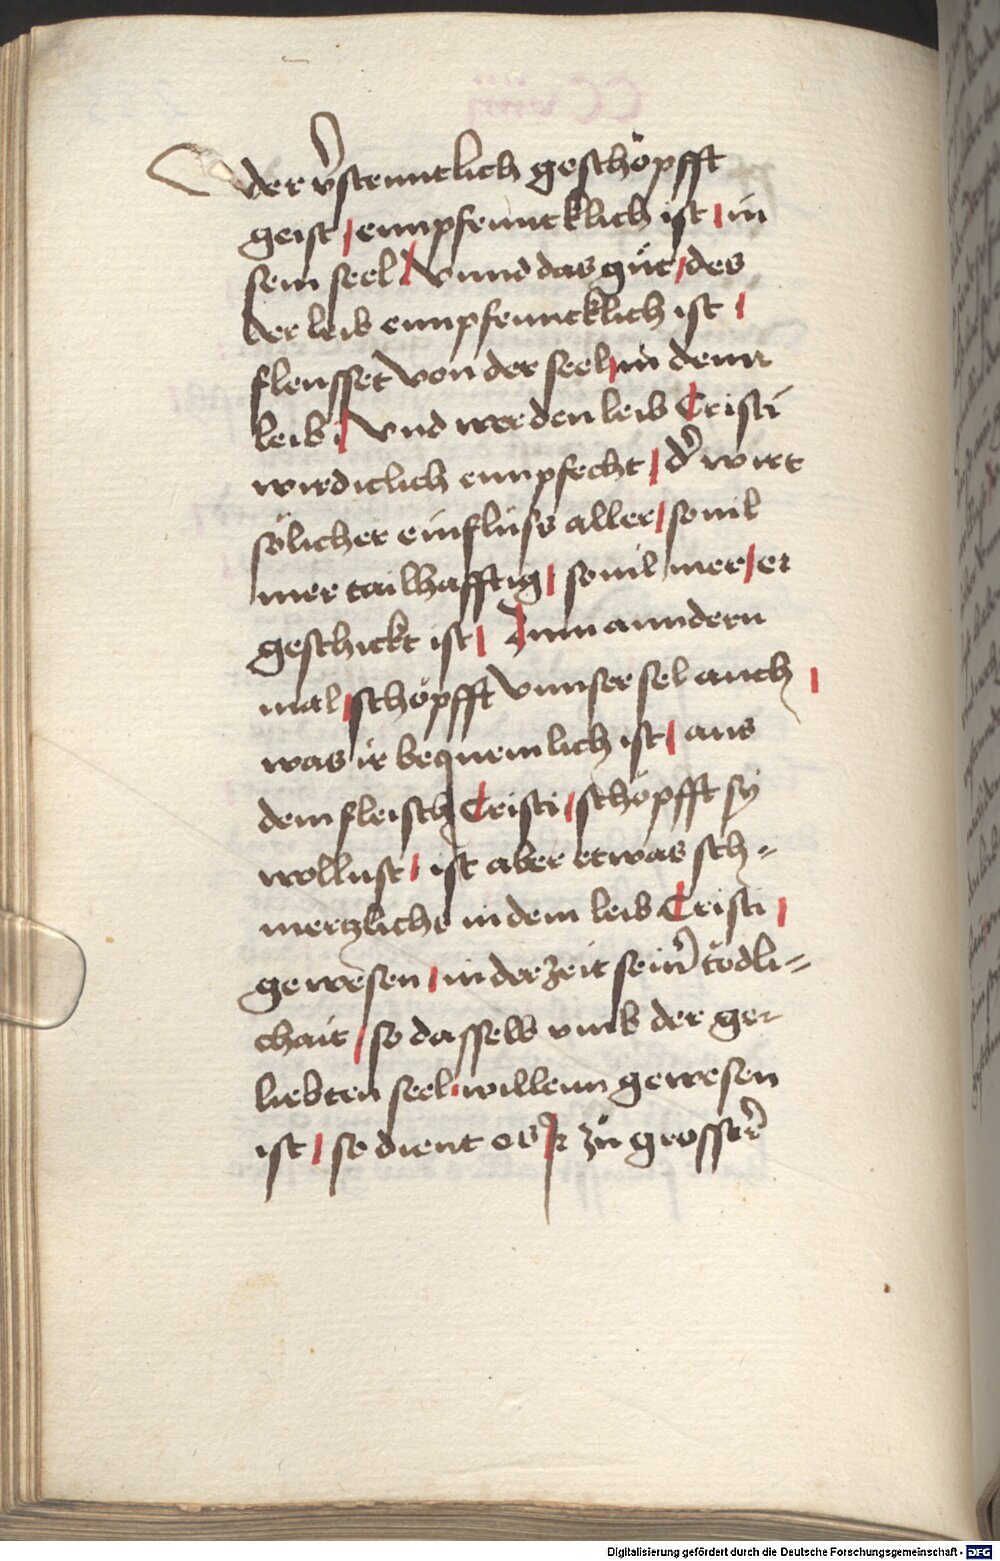 der v̄stenntlich geschöpfft
geist / ennpfenncklich ist / in
sein seel / vnnd das gůt / des
der leib ennpfenncklich ist /
fleusset von der seel / in denn
leib / vnd wer den leib Cristi
wirdiclich ennpfecht / d̄ wirt
sölicher einfluss aller / souil
mer tailhafftig / souil mer / er
geschickt ist / Zum anndern
mal / schöpfft vnnser sel auch /
was ir bequemlich ist / aus
dem fleisch Cristi / schöpfft sy
wollust / ist aber etwas sch=
mertzlichs in dem leib Cristi /
gewesen / in der zeit sein̄ tödli=
chait / so dasselb vmb der ge=
liebten seel / willenn gewesen
ist / so dient es Ir zů grosser̄
Digitalisierung gefördert durch die Deutsche Forschungsgemeinschaft - DFG